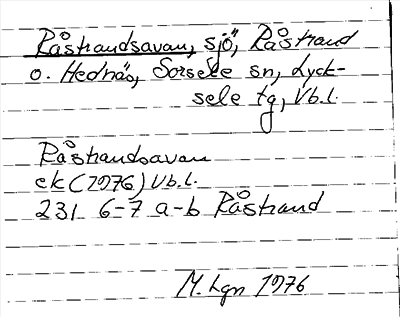 Råstrandsavan, sjö, Råstrand
o. Hednäs, Sorsele sn, Lyck-
sele tg, Vb.l.
Råstrandsavan
ek (1976) Vb.l.
231 6-7 a-b Råstrand
M. Lgn 1976